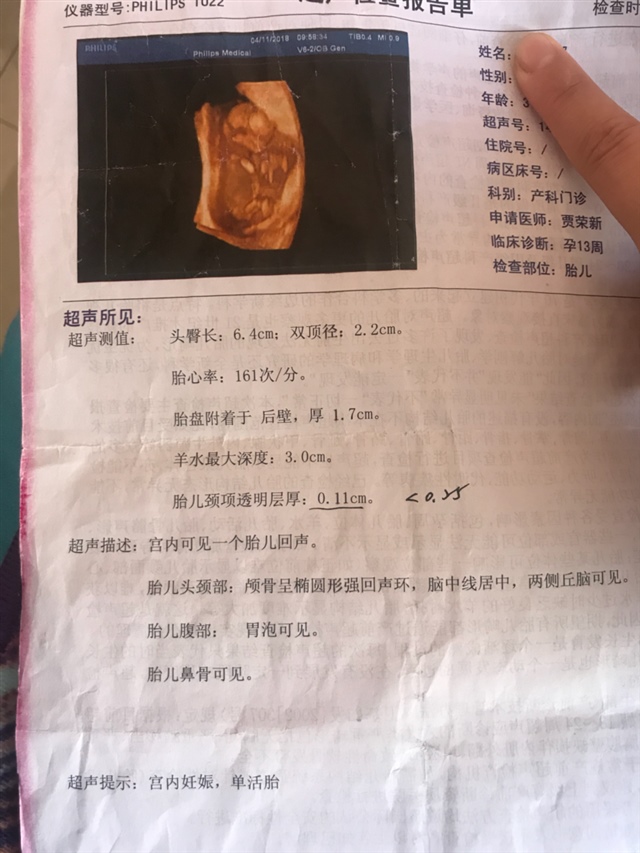 仪器型号:PHILIPS 1022
检查报告单
检查时
PHILIPS
04/11/2018 09:58:34 TIB0.4 MI 0.9
Philips Medical V6-2/OB Gen
姓名:
性别:
年龄: 3
超声号: 1
住院号: /
病区床号: /
科别: 产科门诊
申请医师: 贾荣新
临床诊断: 孕13周
检查部位: 胎儿
超声所见:
超声测值: 头臀长: 6.4cm; 双顶径: 2.2cm。
胎心率: 161次/分。
胎盘附着于 后壁, 厚 1.7cm。
羊水最大深度: 3.0cm。
胎儿颈项透明层厚: 0.11cm。 <0.25
超声描述: 宫内可见一个胎儿回声。
胎儿头颈部: 颅骨呈椭圆形强回声环, 脑中线居中, 两侧丘脑可见。
胎儿腹部: 胃泡可见。
胎儿鼻骨可见。
超声提示: 宫内妊娠, 单活胎